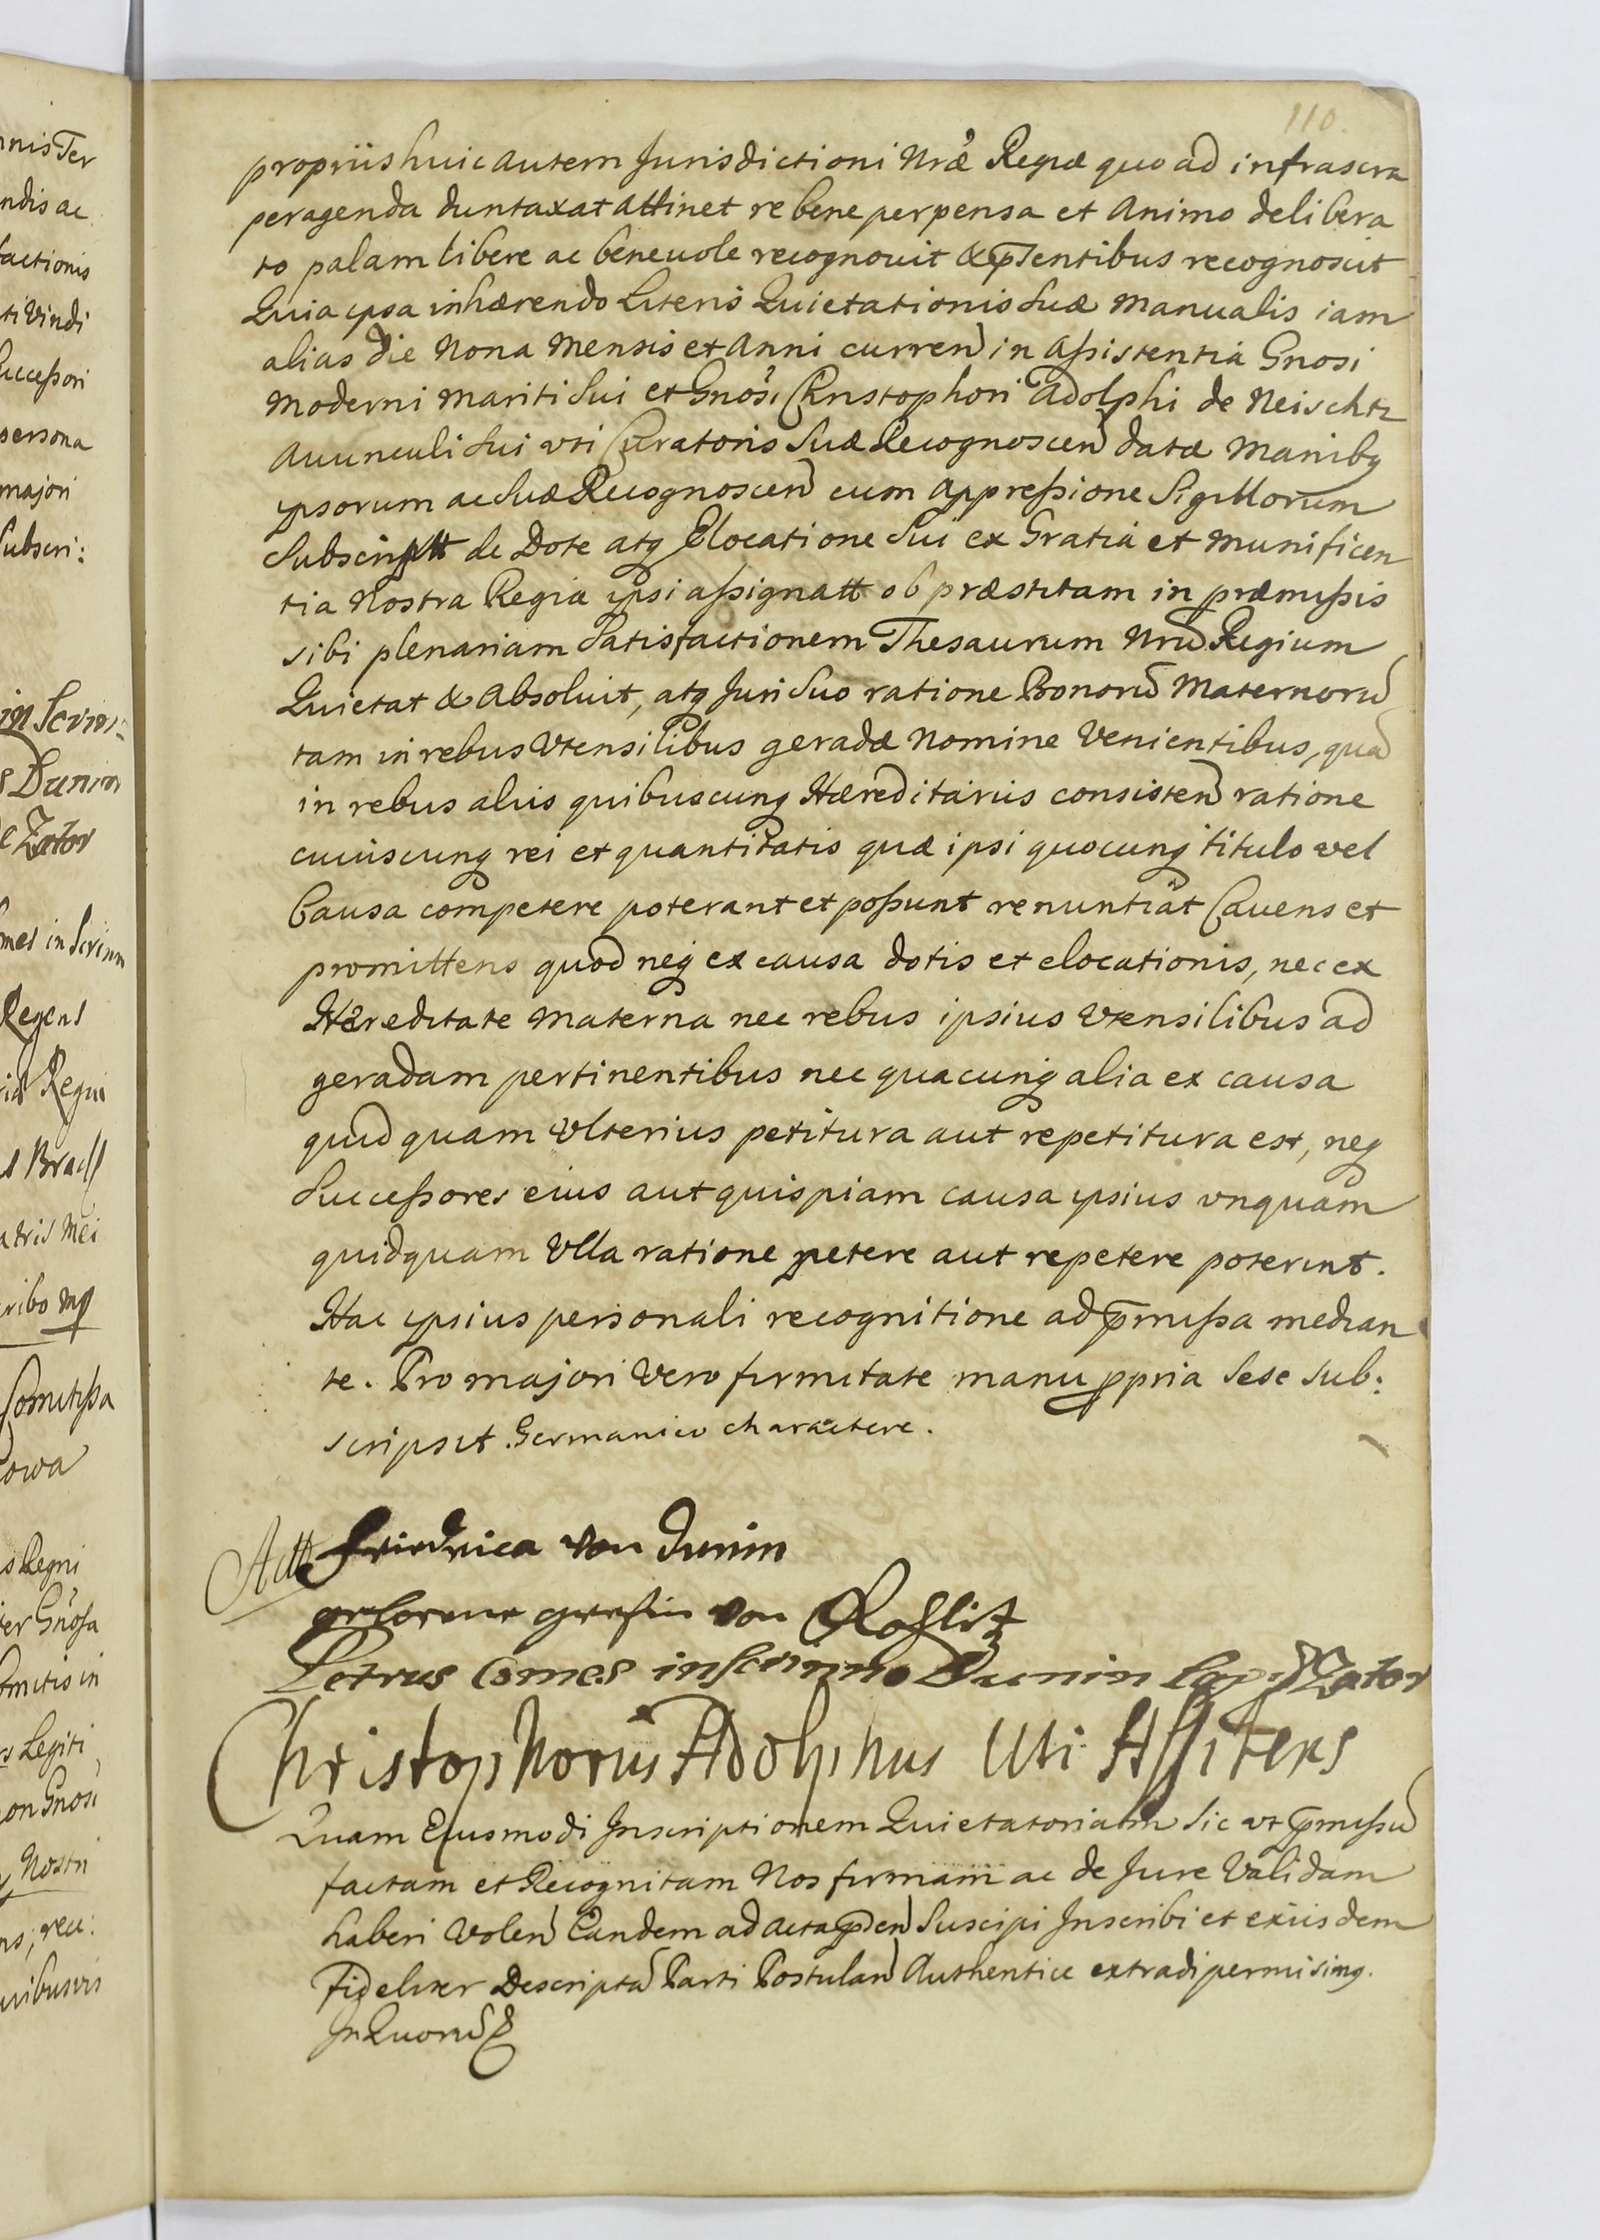 110.
propriis huic autem Jurisdictioni Nrae Regiae quo ad infrascra
peragenda duntaxat attinet re bene perpensa et Animo delibera
to palam libere ac beneuole recognouit & pntentibus recognoscit
Quia ipsa inhærendo Literis Quietationis Suæ Manualis iam
alias die Nona Mensis et Anni curren in Assistentia Gnosi
Moderni Mariti Sui et Gnosi Christophori Adolphi de Neischtz
Auunculi Sui vti Curatoris Suæ Recognoscen datæ Manibq
ipsorum ac Suæ Recognoscen cum Appressione Sigillorum
Subscriptt de Dote atq Elocatione Sui ex Gratia et Munificen
tia Nostra Regia ipsi assignatt ob præstitam in præmissis
sibi plenariam Satisfactionem Thesaurum Nrm Regium
Quietat & Absoluit, atq Juri Suo ratione Bonorū Maternorū
tam in rebus Vtensilibus geradæ Nomine Venientibus, quā
in rebus aliis quibuscunq Hæreditariis consisten ratione
cuiuscunq rei et quantitatis quæ ipsi quocunq titulo vel
Causa competere poterant et possunt renuntiat Cauens et
promittens quod neq ex causa dotis et elocationis, nec ex
Hæreditate Materna nec rebus ipsius Vtensilibus ad
geradam pertinentibus nec quacunq alia ex causa
quidquam Vlterius petitura aut repetitura est, neq
Successores eius aut quispiam causa ipsius vnquam
quidquam Vlla ratione petere aut repetere poterint.
Hac ipsius personali recognitione ad pmissa median
te. Pro majori Vero firmitate manu ppria Sese Sub:
scripsit Germanico charactere.
Friedrica von Dunin
geborene grefin von
Petrus Comes in Scrinno Dunin Cap Zator
Christophorus Adolphus Uti Assitens
Quam Eiusmodi Inscriptionem Quietatoriam Sic vt pmissū
factam et Recognitam Nos firmam ac de Jure Validam
haberi Volen Eandem ad Acta pden Suscipi Inscribi et exiis dem
Fideliter Descriptā Parti Postulan Authentice extradi permisimq.
In Quorū &